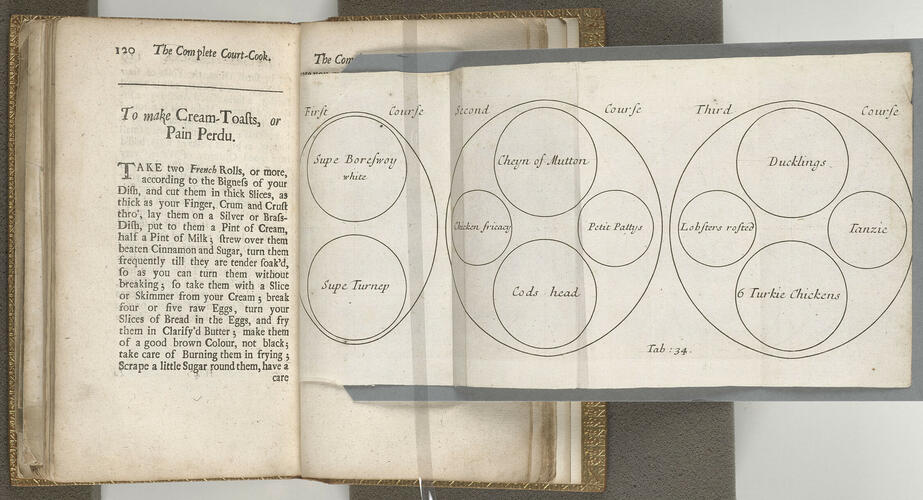 120 The Complete Court-Cook.
To make Cream-Toaſts, or
Pain Perdu.
TAKE two French Rolls, or more,
according to the Bigneſs of your
Diſh, and cut them in thick Slices, as
thick as your Finger, Crum and Cruſt
thro', lay them on a Silver or Braſs-
Diſh, put to them a Pint of Cream,
half a Pint of Milk; ſtrew over them
beaten Cinnamon and Sugar, turn them
frequently till they are tender ſoak'd,
ſo as you can turn them without
breaking; ſo take them with a Slice
or Skimmer from your Cream; break
four or five raw Eggs, turn your
Slices of Bread in the Eggs, and fry
them in Clarify'd Butter; make them
of a good brown Colour, not black;
take care of Burning them in frying;
Scrape a little Sugar round them, have a
care
The Com
First Course
Supe Boreſwoy
white
Supe Turnep
Second Course
Cheyn of Mutton
Chicken fricacy
Petit Pattys
Cods head
Third Course
Ducklings
Lobsters rosted
Tanzie
6 Turkie Chickens
Tab: 34.